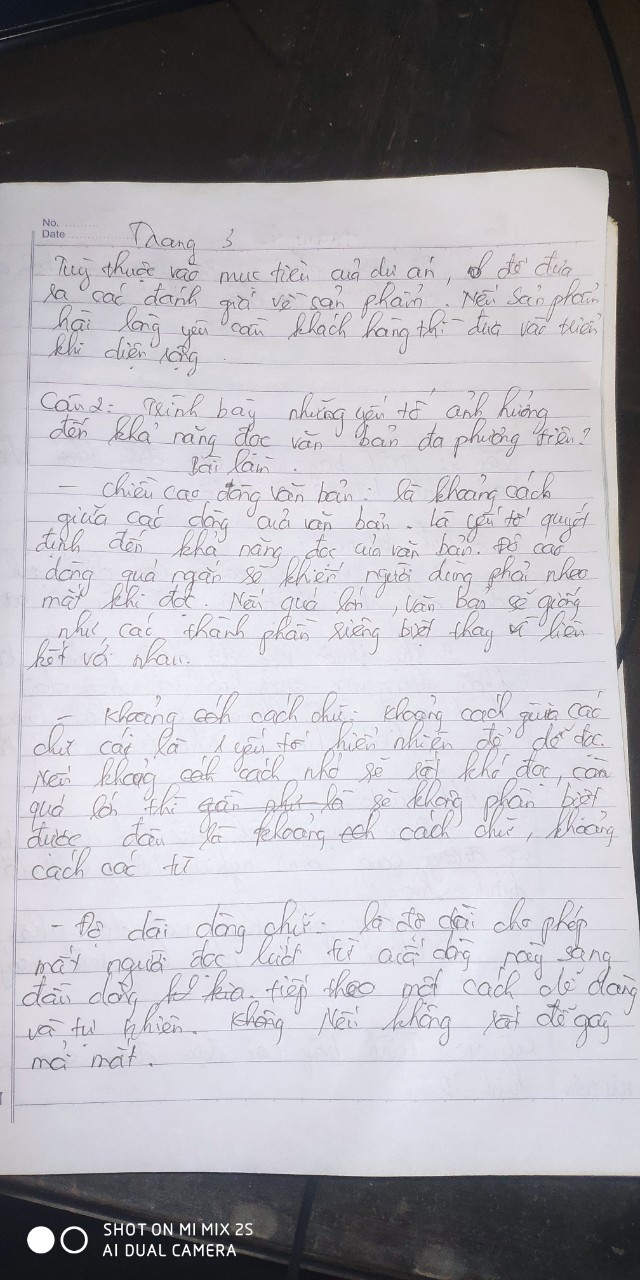 No.
Date
Thang 3
Tuỳ thuộc vào mục tiêu của dự án, để đưa
ra các đánh giá về sản phẩm. Nếu sản phẩm
hài lòng yêu cầu khách hàng thì đưa vào triển
khi diện rộng
Câu 2: Trình bày những yếu tố ảnh hưởng
đến khả năng đọc văn bản đa phương tiện?
Bài làm.
- chiều cao dòng văn bản: là khoảng cách
giữa các dòng của văn bản. Là yếu tố quyết
định đến khả năng đọc của văn bản. Độ cao
dòng quá ngắn sẽ khiến người dùng phải nheo
mắt khi đọc. Nếu quá lớn, văn bản sẽ giống
như các thành phần riêng biệt thay vì liên
kết với nhau.
- Khoảng cách chữ: khoảng cách giữa các
chữ cái là 1 yếu tố hiển nhiên để dễ đọc.
Nếu khoảng cách nhỏ sẽ rất khó đọc, còn
quá lớn thì sẽ không phân biệt
được đâu là khoảng cách chữ, khoảng
cách các từ
- Độ dài dòng chữ: là độ dài cho phép
mắt người đọc lướt từ cuối dòng này sang
đầu dòng tiếp theo một cách dễ dàng
và tự nhiên. Nếu không rất dễ gây
mỏi mắt.
SHOT ON MI MIX 2S
AI DUAL CAMERA